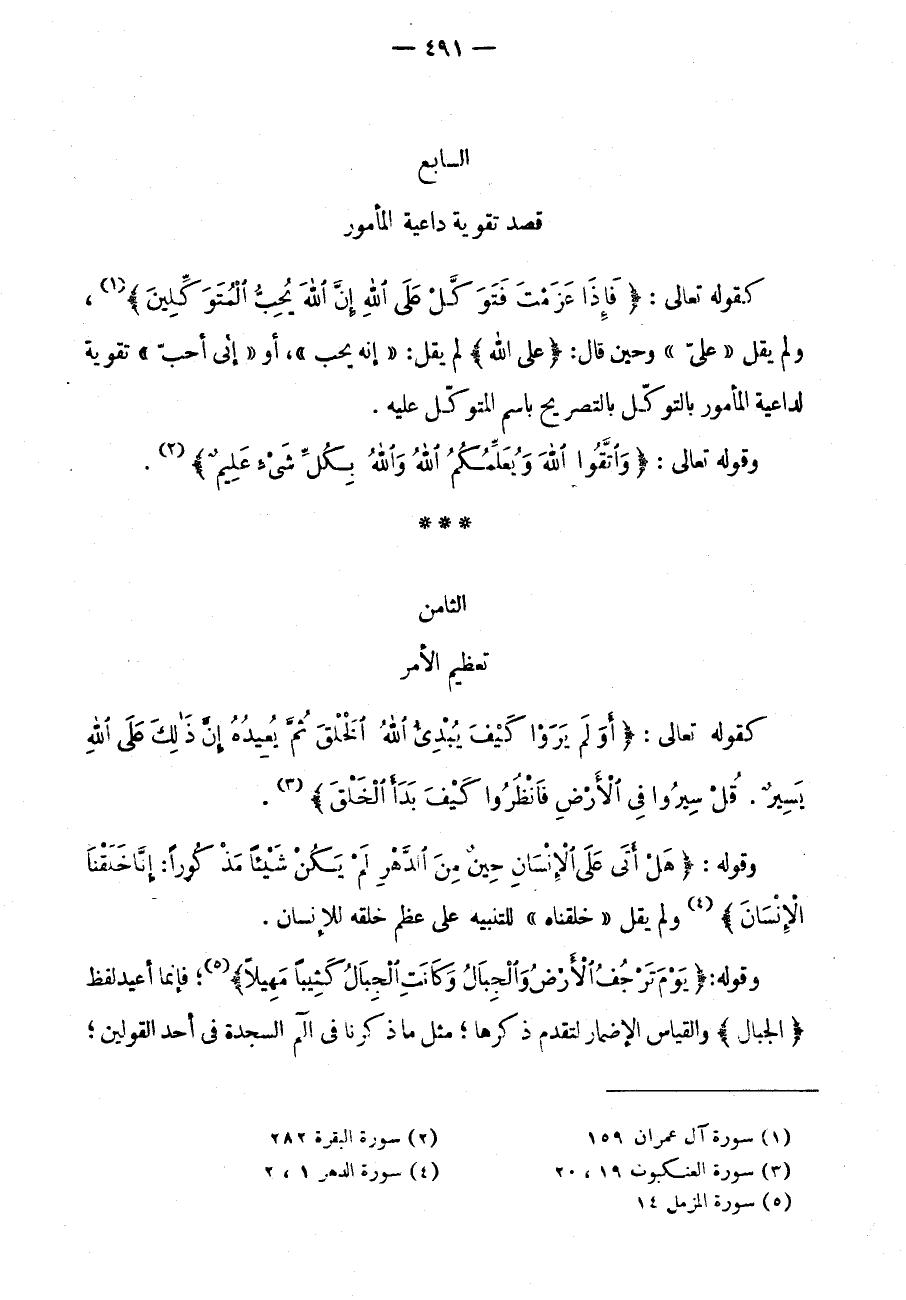 — ٤٩١ —
السابع
قصد تقوية داعية المأمور
كقوله تعالى : ﴿ فَإِذَا عَزَمْتَ فَتَوَكَّلْ عَلَى ٱللهِ إِنَّ ٱللهَ يُحِبُّ ٱلْمُتَوَكِّلِينَ ﴾(١) ،
ولم يقل « علىّ » وحين قال: ﴿ على الله ﴾ لم يقل: « إنه يحب »، أو « إنى أحبّ » تقوية
لداعية المأمور بالتوكّل بالتصريح باسم المتوكّل عليه .
وقوله تعالى : ﴿ وَٱتَّقُوا ٱللهَ وَيُعَلِّمُكُمُ ٱللهُ وَٱللهُ بِكُلِّ شَىْءٍ عَلِيمٌ ﴾(٢) .
* * *
الثامن
تعظيم الأمر
كقوله تعالى : ﴿ أَوَلَمْ يَرَوْا كَيْفَ يُبْدِئُ ٱللهُ ٱلْخَلْقَ ثُمَّ يُعِيدُهُ إِنَّ ذَٰلِكَ عَلَى ٱللهِ
يَسِيرٌ . قُلْ سِيرُوا فِى ٱلْأَرْضِ فَٱنْظُرُوا كَيْفَ بَدَأَ ٱلْخَلْقَ ﴾(٣) .
وقوله : ﴿ هَلْ أَتَى عَلَى ٱلْإِنْسَانِ حِينٌ مِنَ ٱلدَّهْرِ لَمْ يَكُنْ شَيْئًا مَذْكُوراً: إِنَّا خَلَقْنَا
ٱلْإِنْسَانَ ﴾(٤) ولم يقل « خلقناه » للتنبيه على عظم خلقه للإنسان .
وقوله: ﴿ يَوْمَ تَرْجُفُ ٱلْأَرْضُ وَٱلْجِبَالُ وَكَانَتِ ٱلْجِبَالُ كَثِيباً مَهِيلاً﴾(٥)؛ فإنما أعيد لفظ
﴿ الجبال ﴾ والقياس الإضمار لتقدم ذكرها ؛ مثل ما ذكرنا فى الٓم السجدة فى أحد القولين ؛
(١) سورة آل عمران ١٥٩ (٢) سورة البقرة ٢٨٢
(٣) سورة العنكبوت ١٩ ، ٢٠ (٤) سورة الدهر ١ ، ٢
(٥) سورة المزمل ١٤